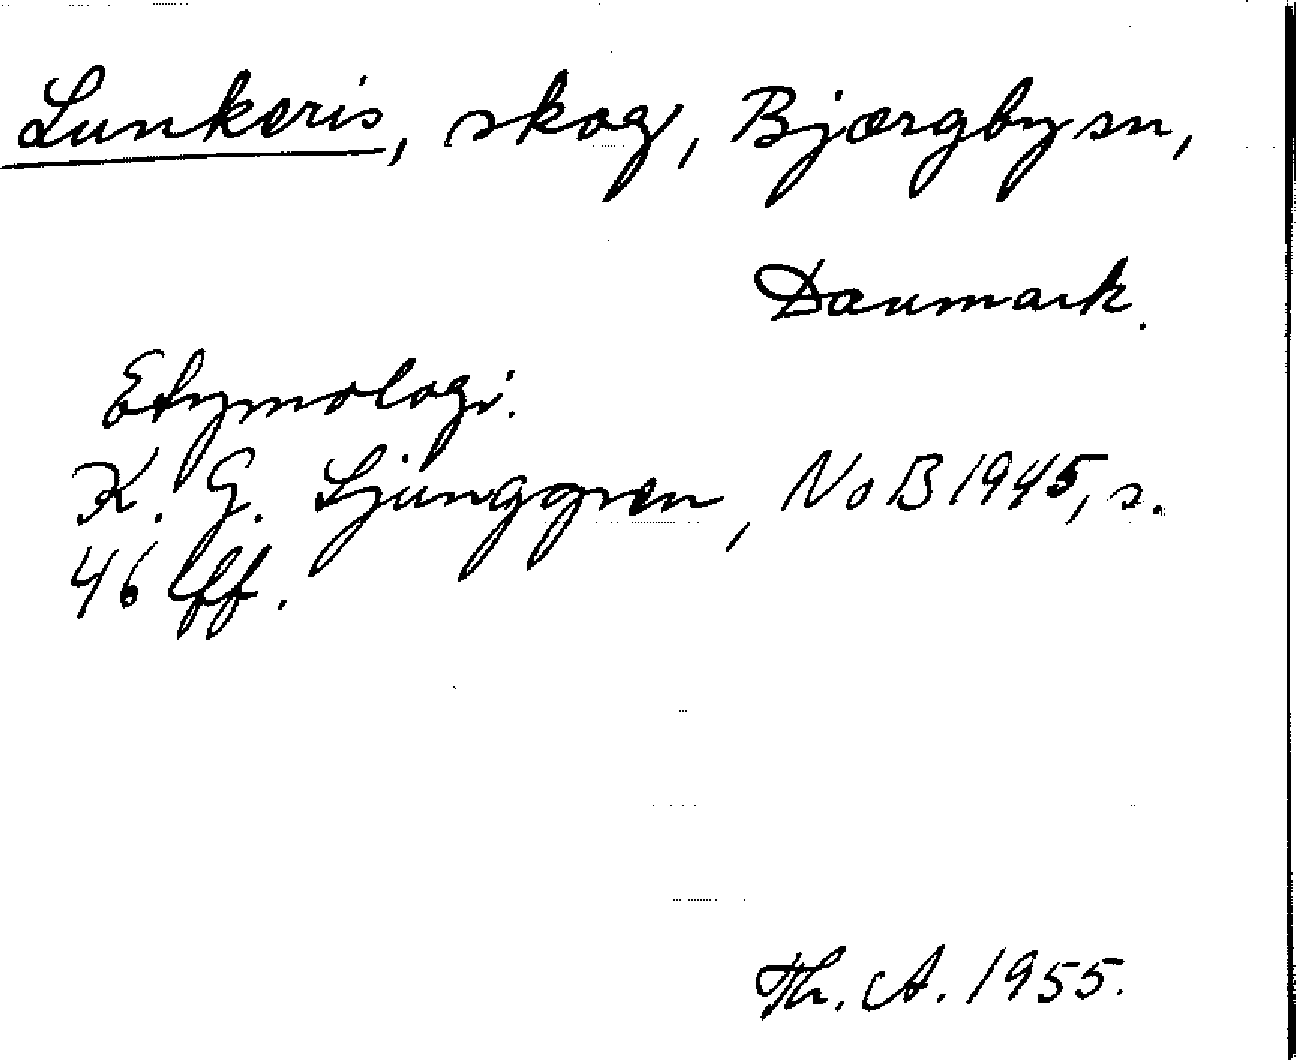 Lunkeris, skog, Bjærgby sn,
Danmark.
Etymologi.
K. G. Ljunggren, NoB 1945, s.
46 ff.
Th. A. 1955.